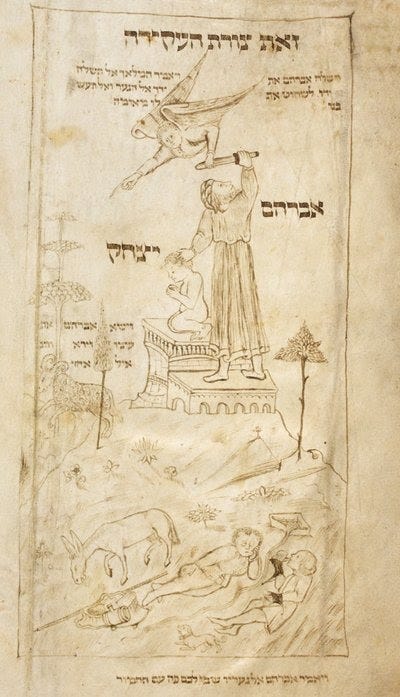 זאת צורת העקידה
וישלח אברהם את
ידו לשחוט את
בנו
ויאמר המלאך אל תשלח
ידך אל הנער ואל תעש
לו מאומה
אברהם
יצחק
וישא אברהם את
עיניו וירא
איל
ויאמר אברהם אל נעריו שבו לכם פה עם החמור